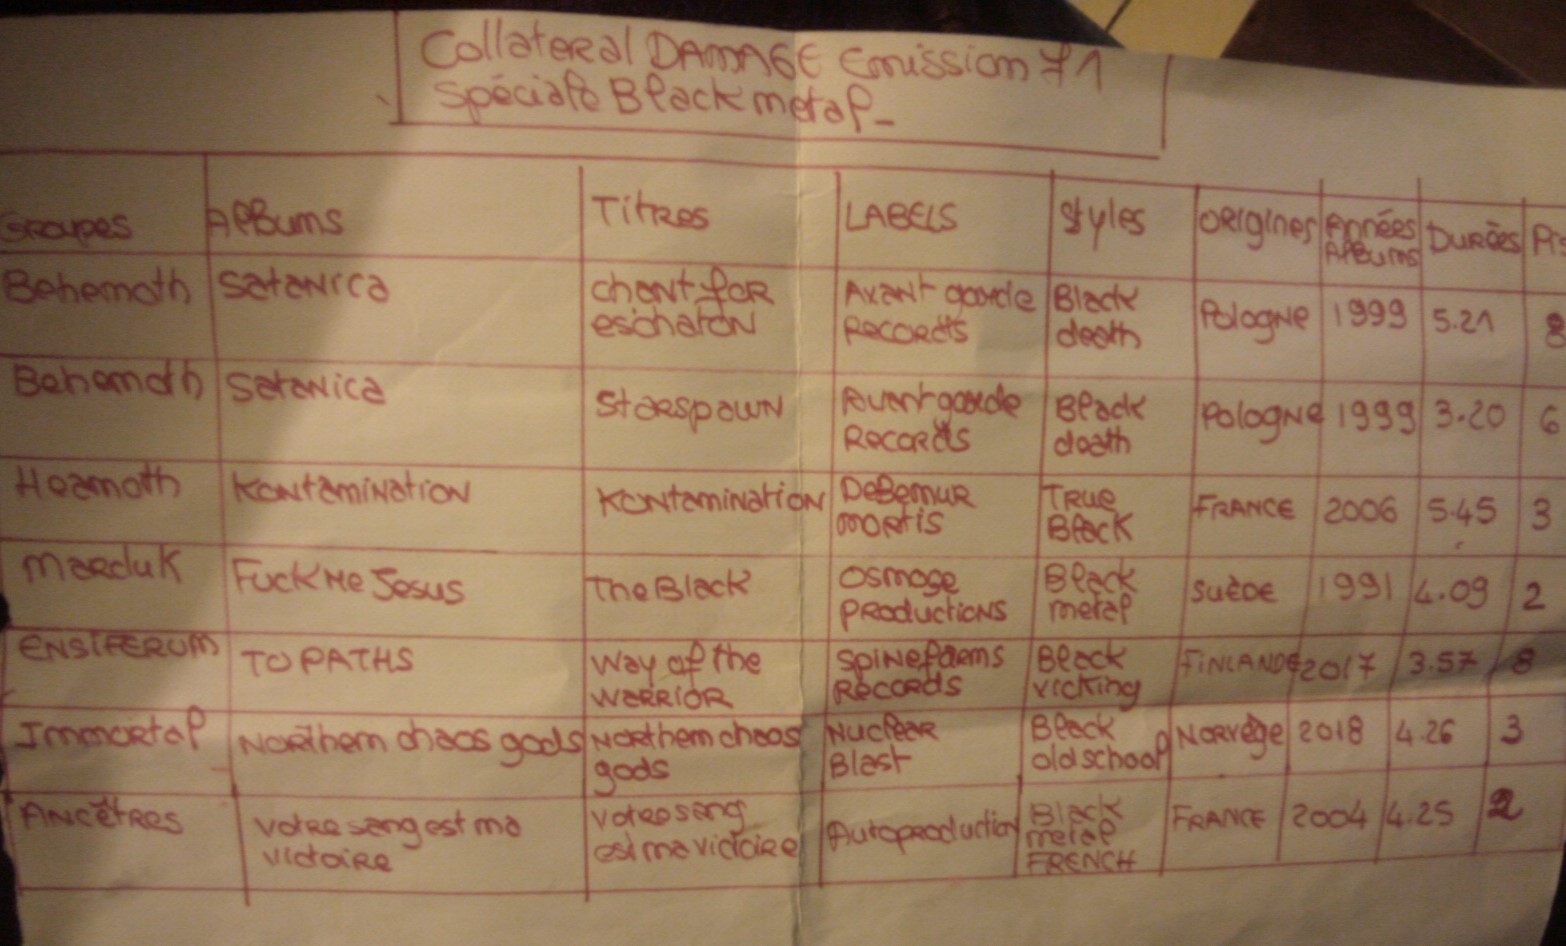 Collateral DAMAGE Emission 71
Spéciale Black metal_
Groupes Albums Titres LABELS Styles ORIGINES Années Albums DURÉES Pis
Behemoth Satanica chant for eschaton Avant garde Records Black death Pologne 1999 5.21 8
Behemoth Satanica Starspawn Avant garde Records Black death Pologne 1999 3.20 6
Heamoth Kontamination Kontamination Debemur mortis True Black FRANCE 2006 5.45 3
Marduk Fuck Me Jesus The Black Osmose PRODUCTIONS Black metal Suède 1991 4.09 2
ENSIFERUM TO PATHS Way of the WARRIOR Spinefarms Records Black vicking FINLANDE 2017 3.57 8
Immortal Northern chaos gods Northern chaos gods Nuclear Blast Black old school Norvège 2018 4.26 3
Ancêtres Votre sang est ma victoire Votre sang est ma victoire Autoproduction Black metal FRENCH FRANCE 2004 4.25 2